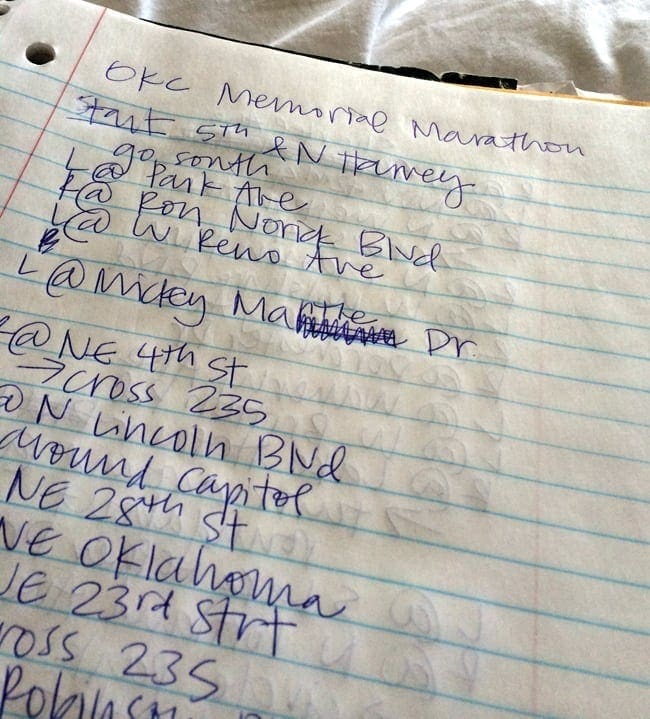 OKC Memorial Marathon
Start 5th & N Harvey
go south
L @ Park Ave
R @ Ron Norick Blvd
L @ W Reno Ave
L @ Mickey Mantle Dr.
@ NE 4th St
→ cross 235
@ N Lincoln Blvd
around capitol
NE 28th St
NE Oklahoma
NE 23rd Strt
ross 235
Robinson